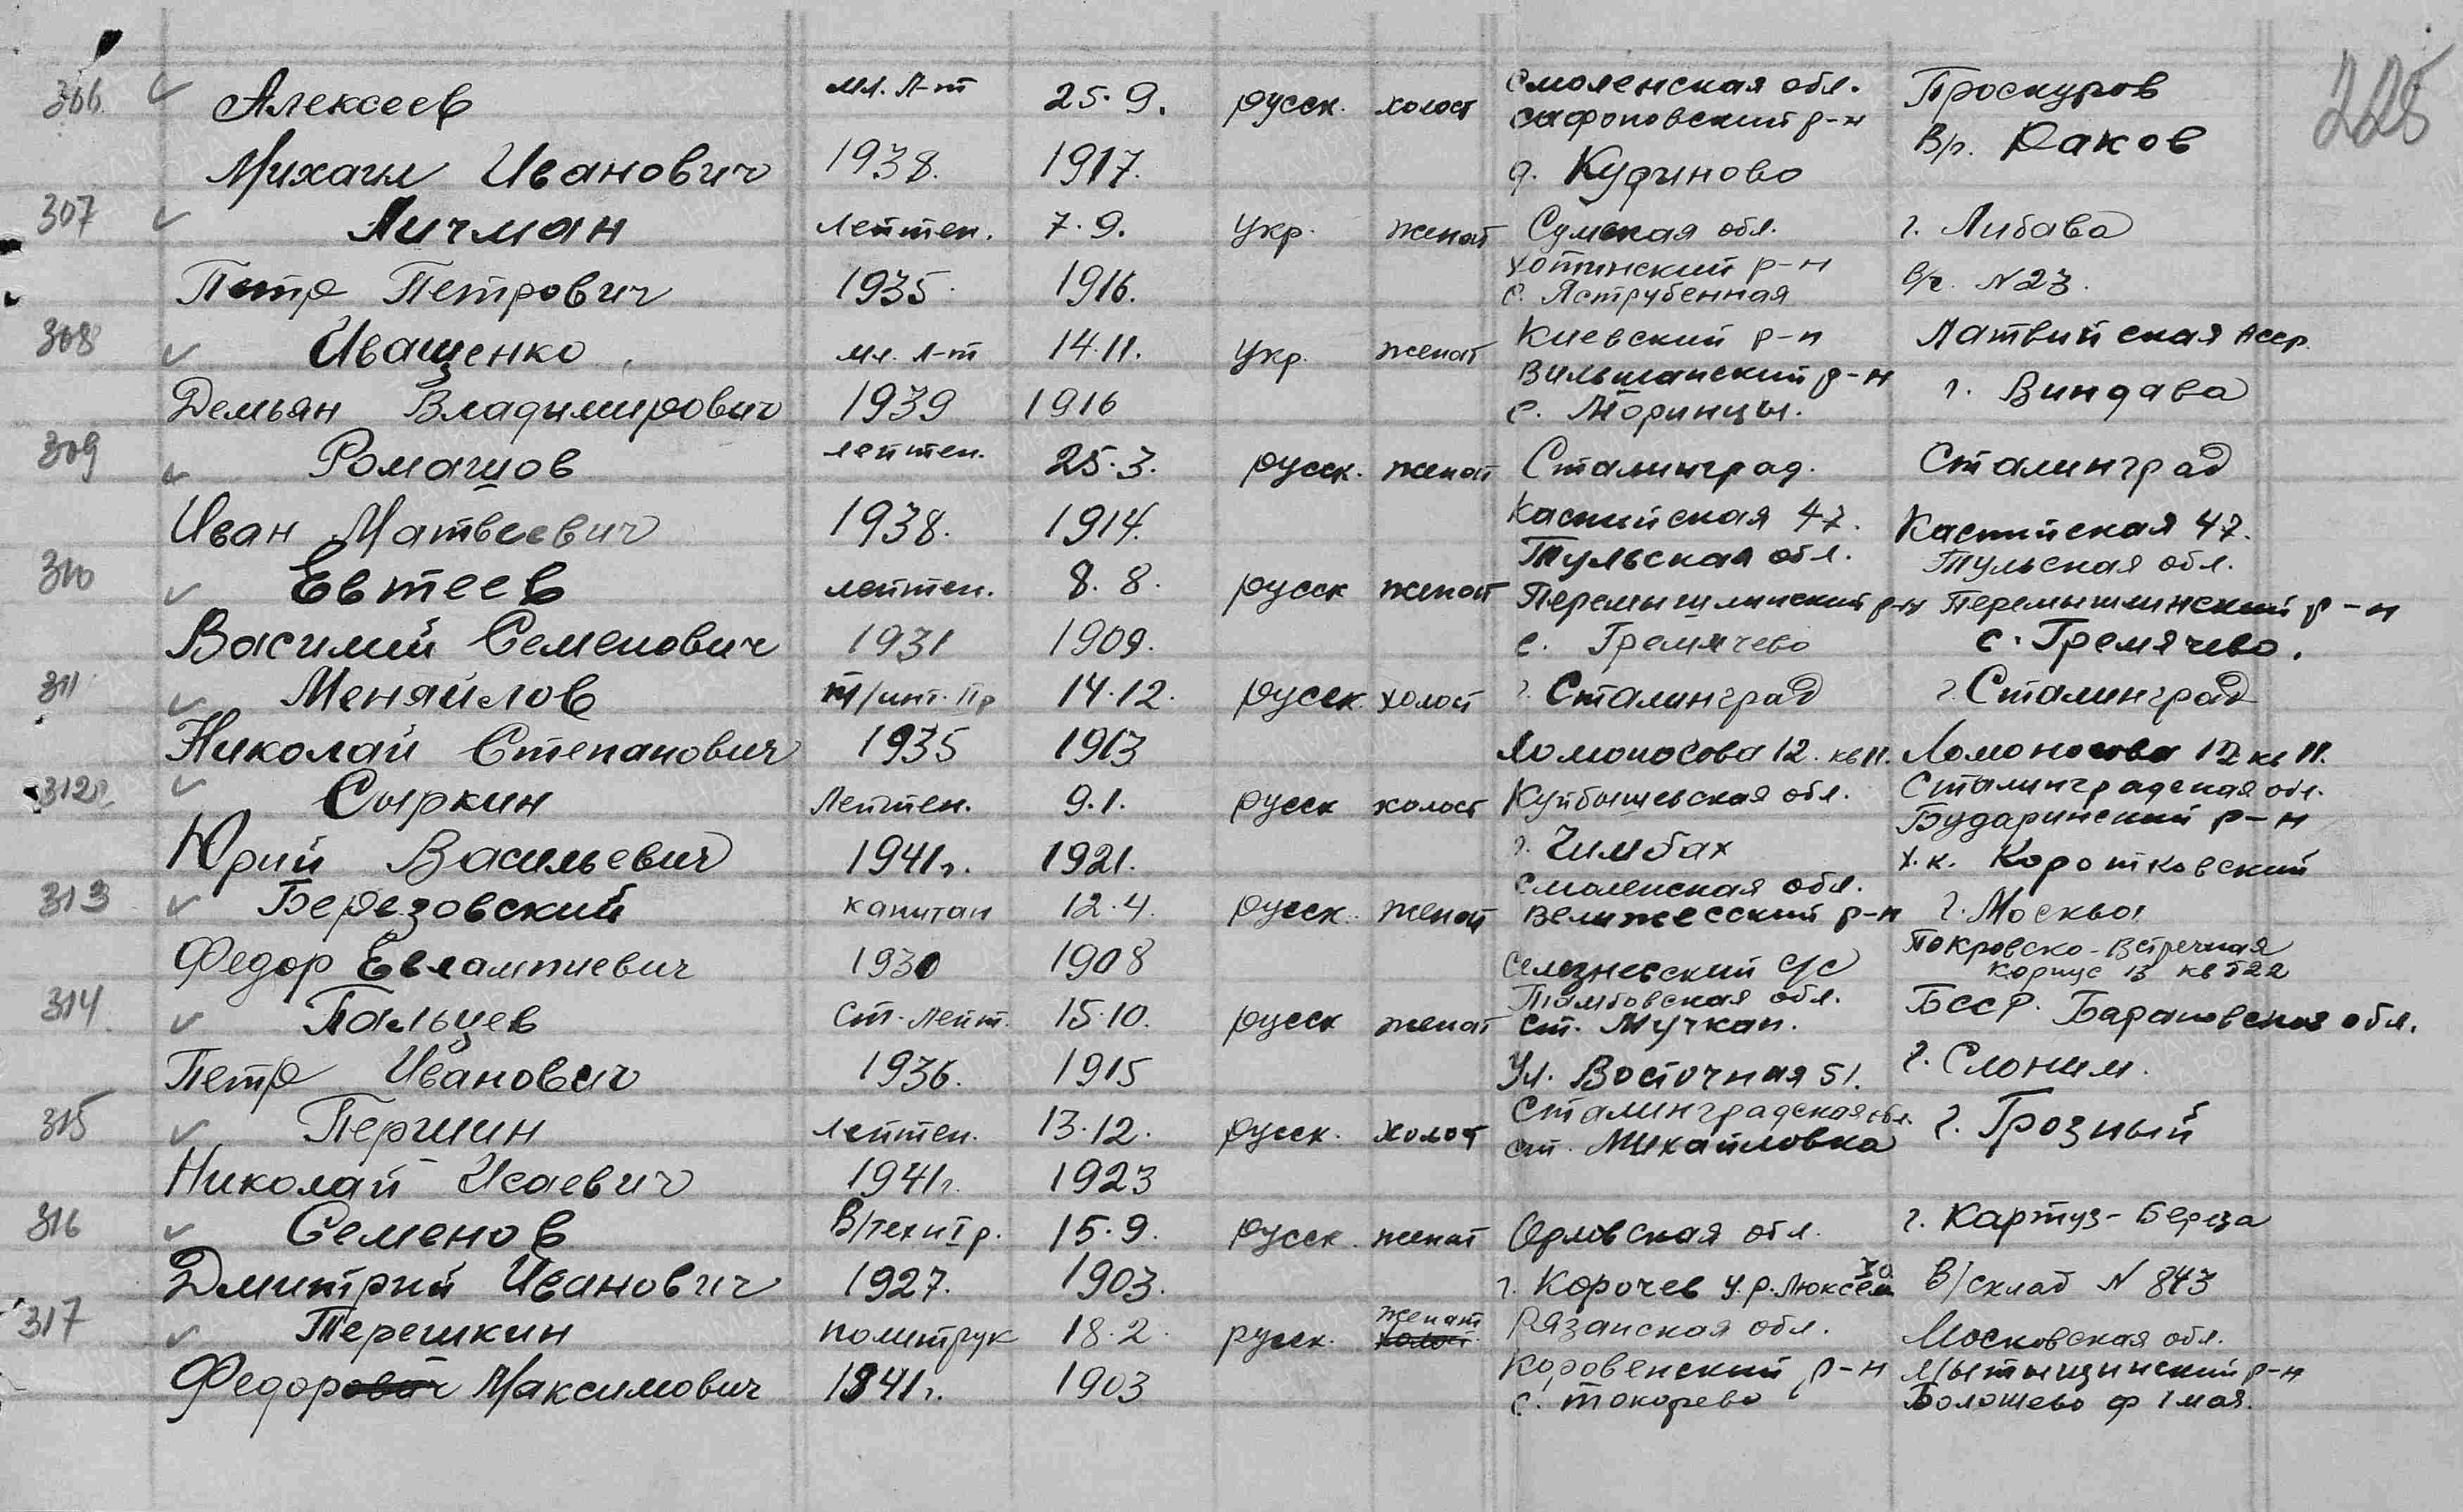 225
306. Алексеев мл. л-т 25.9. русск. холост Смоленская обл. Проскуров
Сафоновский р-н В/г. Раков
Михаил Иванович 1938. 1917. д. Кудиново
307 Личман лейтен. 7.9. укр. женат Сумская обл. г. Либава
Хотинский р-н
Петр Петрович 1935 1916. с. Яструбенная в/г. N 23.
308 Иващенко мл. л-т 14.11. укр. женат Киевский р-н Латвийская Асср
Вильшанский р-н
Демьян Владимирович 1939 1916 с. Моринцы. г. Виндава
309 Ромашов лейтен. 25.3. русск. женат Сталинград. Сталинград
Иван Матвеевич 1938. 1914. Каспийская 47. Каспийская 47.
Тульская обл. Тульская обл.
310 Евтеев лейтен. 8.8. русск женат Перемышлинский р-н Перемышлинский р-н
Василий Семенович 1931 1909. с. Гремячево с. Гремячево.
311 Меняйлов т/инт. IIр 14.12. русск. холост г. Сталинград г. Сталинград
Николай Степанович 1935 1913 Ломоносова 12. кв 11. Ломоносова 12 кв 11.
312 Сыркин Лейтен. 9.1. русск холост Куйбышевская обл. Сталинградская обл.
Бударинский р-н
Юрий Васильевич 1941г. 1921. г. Чимбах х.к. Коротковский
Смоленская обл.
313 Березовский капитан 12.4. русск. женат Велижесский р-н г. Москва
Покровско-Встречная
Федор Евлампиевич 1930 1908 Селезневский с/с корпус 13 кв 522
Тамбовская обл.
314 Пальцев ст. лейт. 15.10. русск женат ст. Мучкап. БССР. Барановская обл.
Петр Иванович 1936. 1915 ул. Восточная 51. г. Слоним.
315 Першин лейтен. 13.12. русск. холост Сталинградская обл. г. Грозный
ст. Михайловка
Николай Исаевич 1941г. 1923
316 Семенов В/техн I р. 15.9. русск. женат Орловская обл. г. Картуз-Береза
Дмитрий Иванович 1927. 1903. г. Корочев у. Р. Люксем 30 В/склад N 843
женат
317 Терешкин политрук 18.2. русск. холост Рязанская обл. Московская обл.
Коровенский р-н Мытыщинский р-н
Федорович Максимович 1941г. 1903 с. Токарево Болошево ф 1 мая.